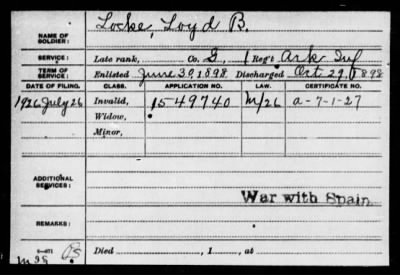 NAME OF SOLDIER: Locke, Loyd B.
SERVICE: Late rank, Co. G, 1 Reg't Ark Inf
TERM OF SERVICE: Enlisted June 30, 1898 Discharged Oct 29, 1898
DATE OF FILING. CLASS. APPLICATION NO. LAW. CERTIFICATE NO.
1926 July 26 Invalid, 1549740 M/26 a-7-1-27
Widow,
Minor,
ADDITIONAL SERVICES:
War with Spain
REMARKS:
Died , 1 , at